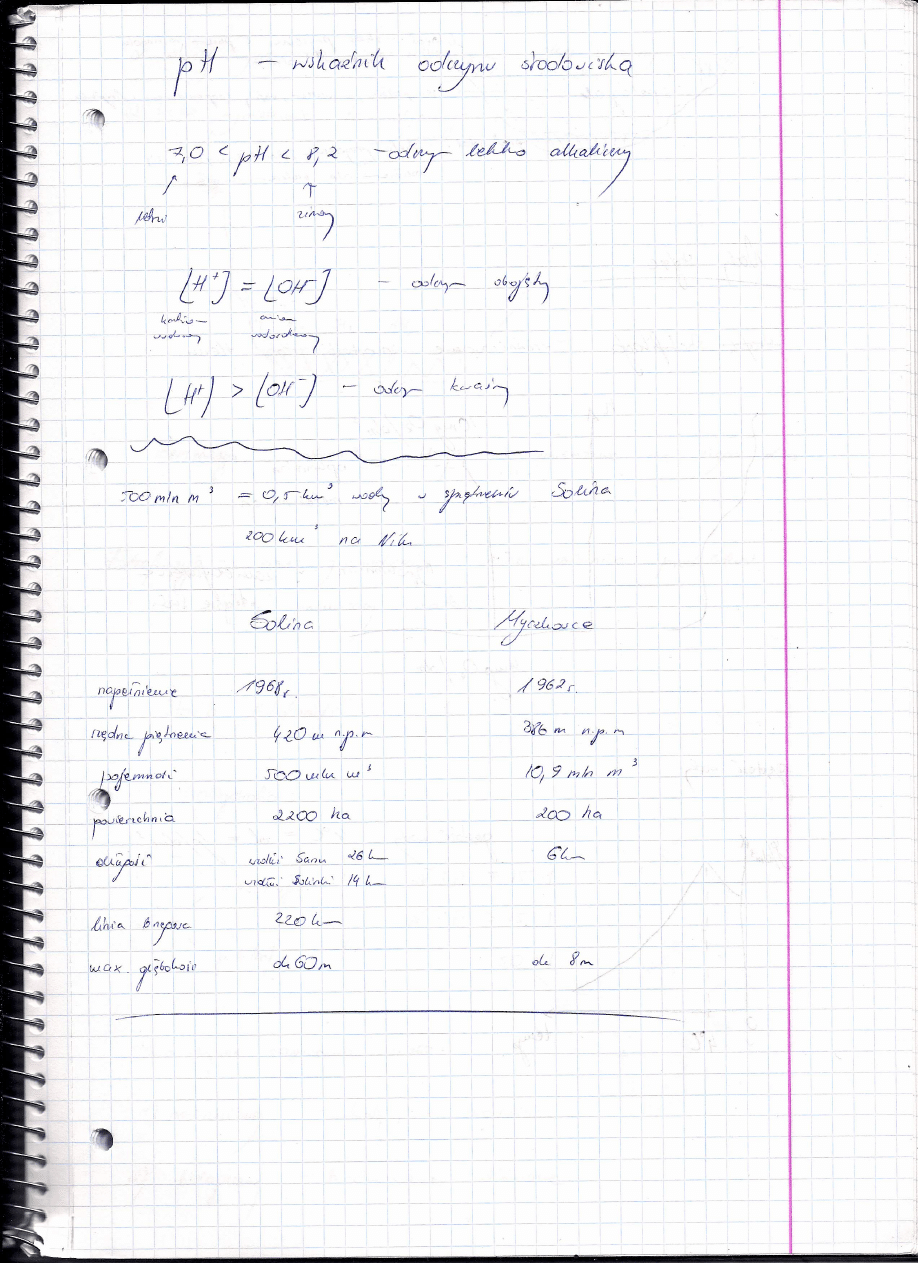 pH – wskaźnik odczynu środowiska
7,0 < pH < 8,2 – odczyn lekko alkaliczny
zimą
[H⁺] = [OH⁻] – odczyn obojętny
kation anion
wodorowy wodorotlenowy
[H⁺] > [OH⁻] – odczyn kwaśny
500 mln m³ = 0,5 km³ wody w spiętrzeniu Solina
200 km³ na Nilu
Solina Myczkowce
napełnienie 1968 r. 1962 r.
rzędna piętrzenia 420 m n.p.m 386 m n.p.m
pojemność 500 mln m³ 10,9 mln m³
powierzchnia 2200 ha 200 ha
długość wzdłuż Sanu 26 km 6 km
wzdłuż Solinki 14 km
linia brzegowa 220 km
max. głębokość do 60 m do 8 m